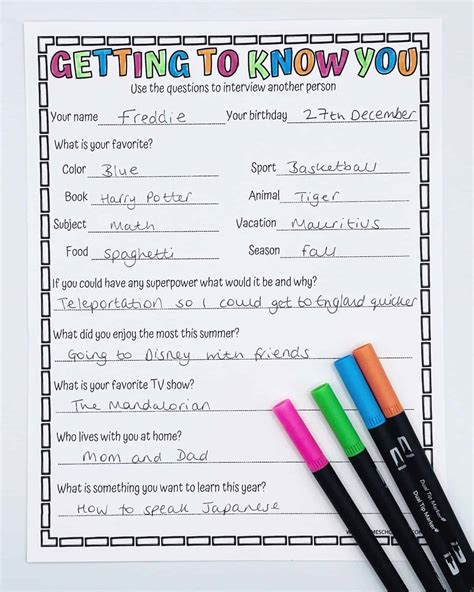 GETTING TO KNOW YOU
Use the questions to interview another person
Your name Freddie Your birthday 27th December
What is your favorite?
Color Blue Sport Basketball
Book Harry Potter Animal Tiger
Subject Math Vacation Mauritius
Food spaghetti Season fall
If you could have any superpower what would it be and why?
Teleportation so I could get to England quicker
What did you enjoy the most this summer?
Going to Disney with friends
What is your favorite TV show?
The Mandalorian
Who lives with you at home?
Mom and Dad
What is something you want to learn this year?
How to speak Japanese
Dual Tip Marker
Dual Tip Marker